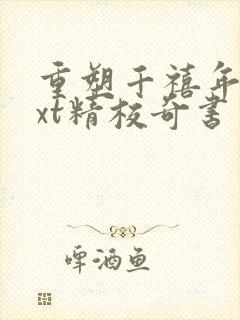 重塑千禧年
xt精校奇书
啤酒鱼